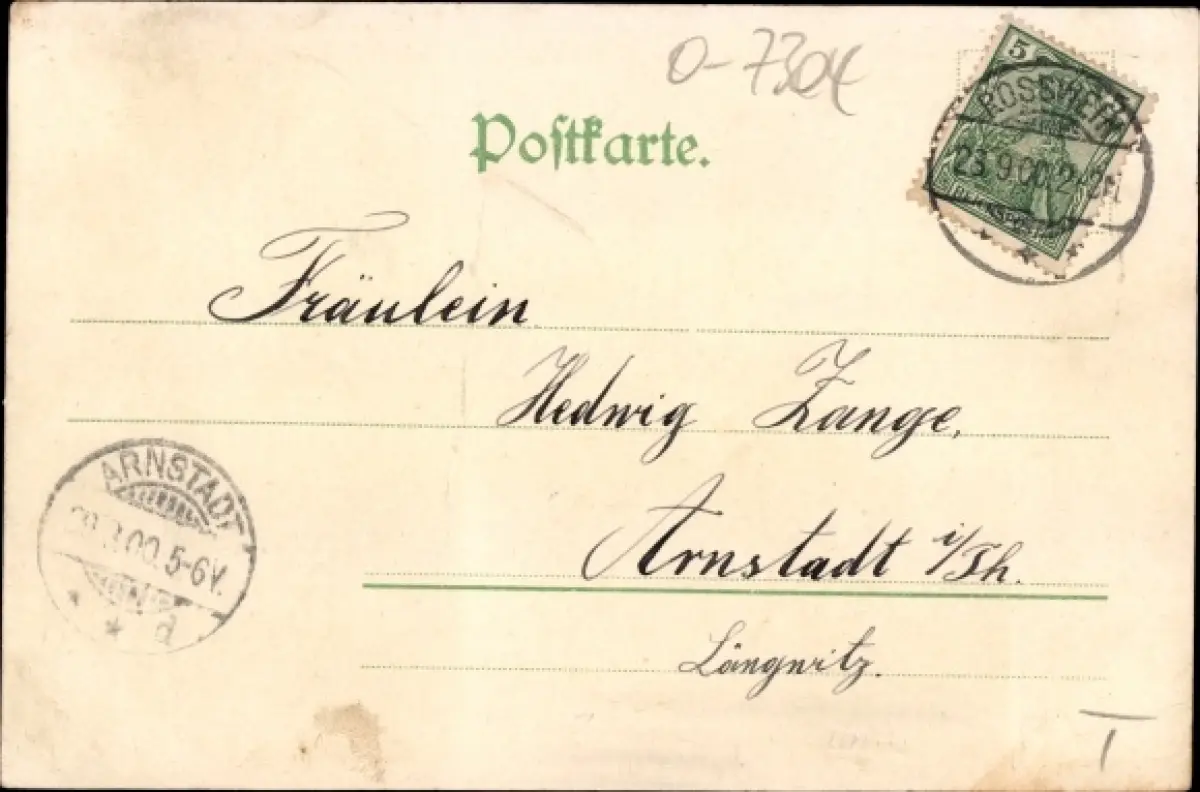 O-7304
Postkarte.
5
ROSSHEIM
23.9.00.
REICHSPOST
Fräulein
Hedwig Zange,
Arnstadt i/Th.
Längwitz.
ARNSTADT
.00. 5-6V.
* d